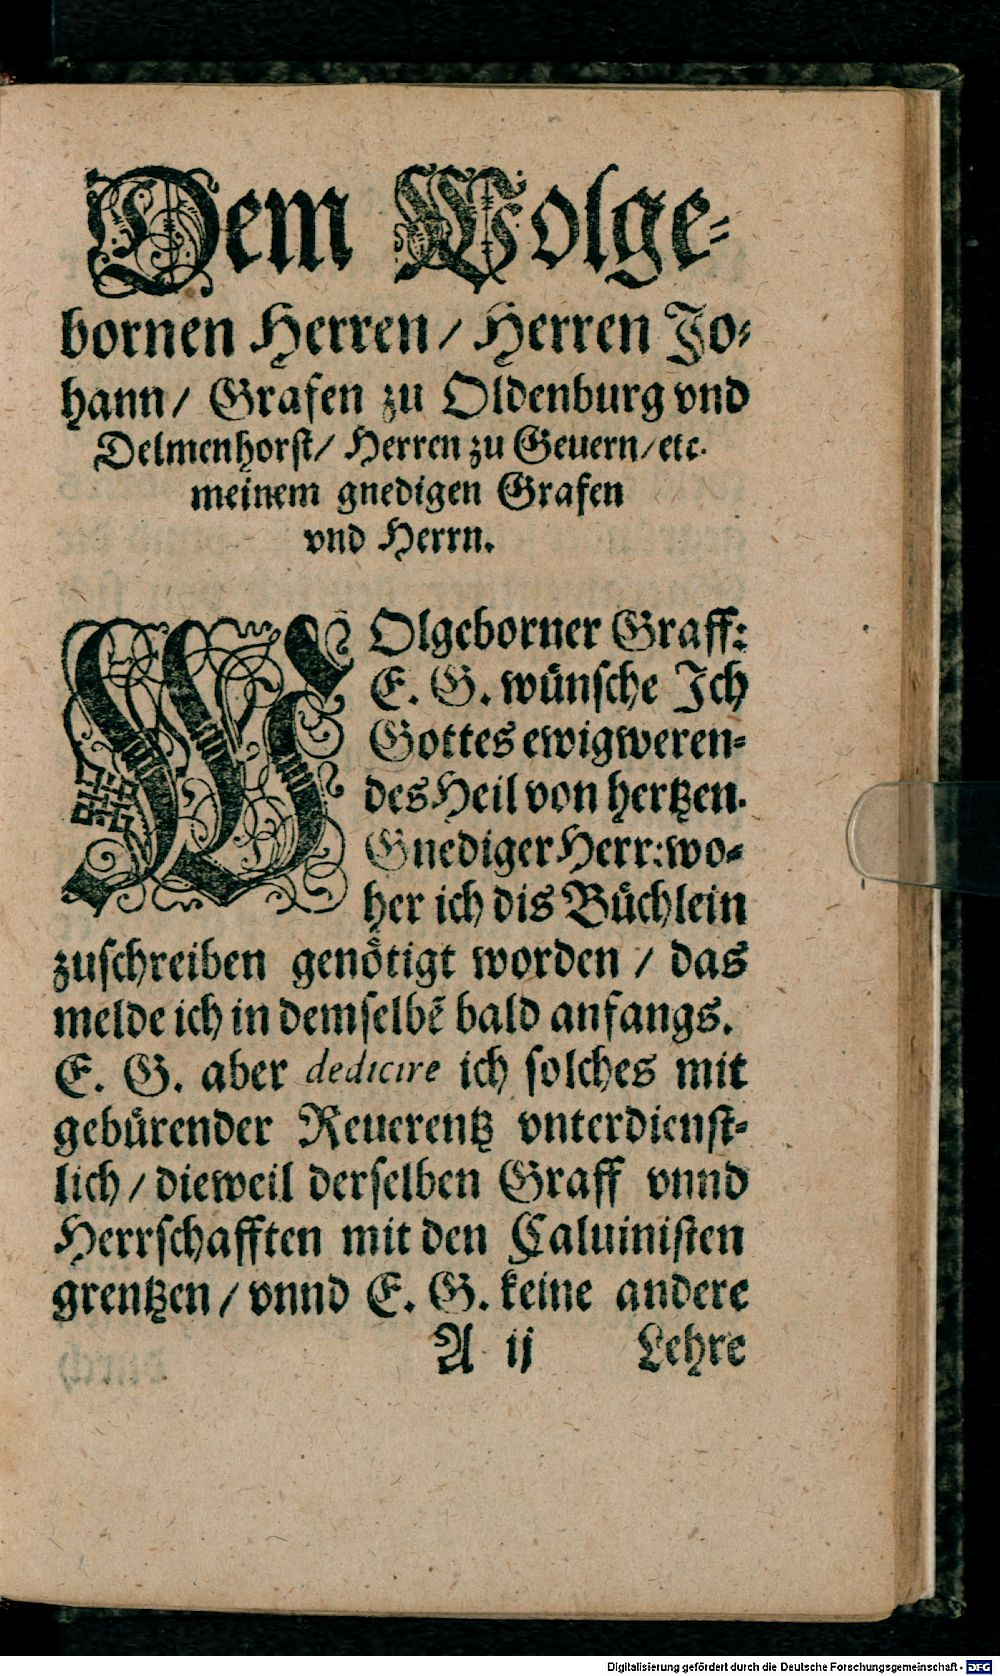 Dem Wolge-
bornen Herren / Herren Jo-
hann / Grafen zu Oldenburg vnd
Delmenhorst / Herren zu Geuern / etc.
meinem gnedigen Grafen
vnd Herrn.
WOlgeborner Graff:
E. G. wuͤnsche Ich
Gottes ewigweren-
des Heil von hertzen.
Gnediger Herr: wo-
her ich dis Buͤchlein
zuschreiben genoͤtigt worden / das
melde ich in demselbẽ bald anfangs.
E. G. aber dedicire ich solches mit
gebuͤrender Reuerentz vnterdienst-
lich / dieweil derselben Graff vnnd
Herrschafften mit den Caluinisten
grentzen / vnnd E. G. keine andere
A ij Lehre
Digitalisierung gefördert durch die Deutsche Forschungsgemeinschaft - DFG